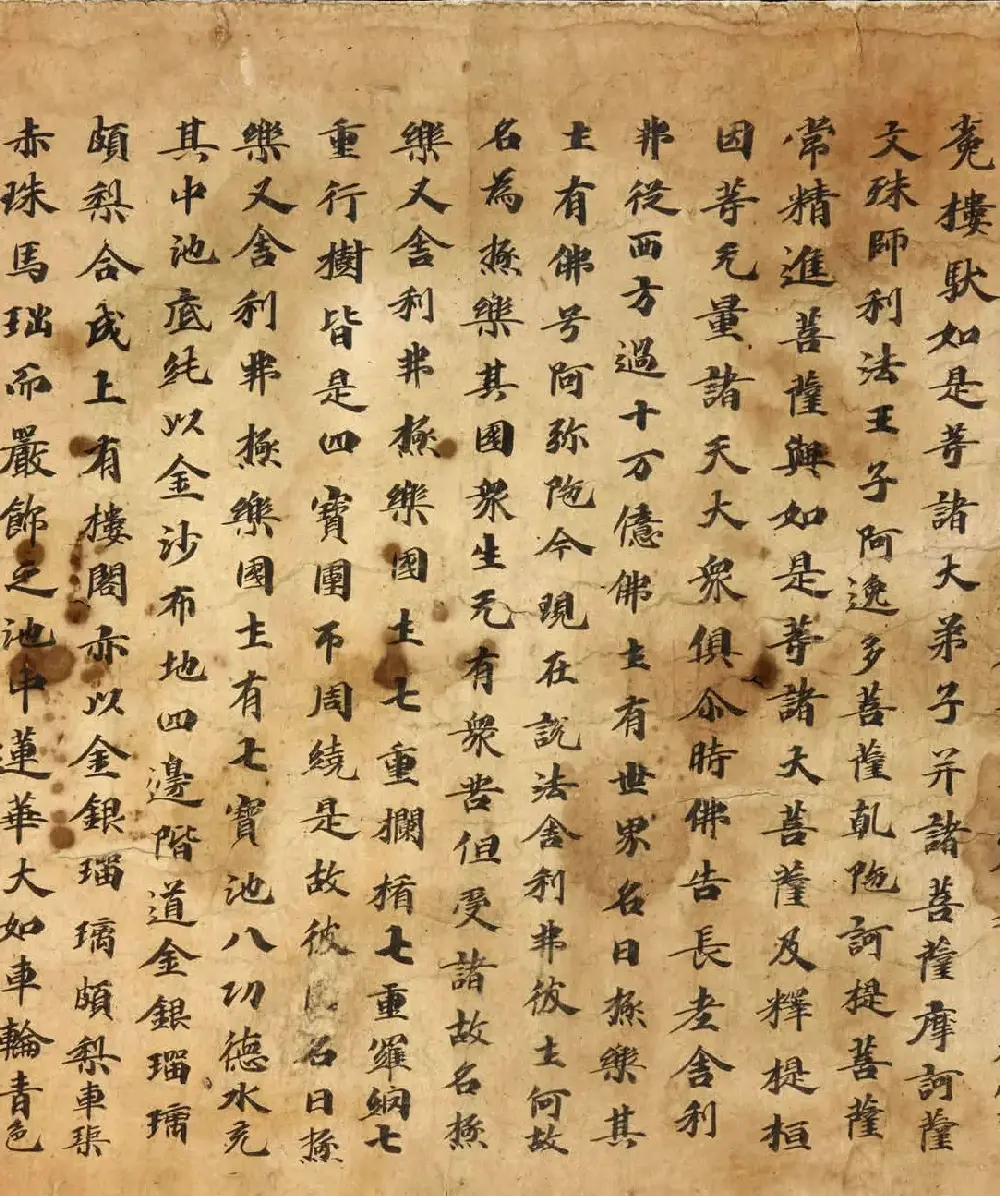 菟樓馱如是等諸大弟子并諸菩薩摩訶薩
文殊師利法王子阿逸多菩薩乹陁訶提菩薩
常精進菩薩與如是等諸大菩薩及釋提桓
因等无量諸天大衆俱尒時佛告長老舍利
弗從西方過十万億佛土有世界名曰極樂其
土有佛号阿弥陁今現在說法舍利弗彼土何故
名為極樂其國衆生无有衆苦但受諸故名極
樂又舍利弗極樂國土七重欄楯七重羅網七
重行樹皆是四寶圍帀周繞是故彼國名曰極
樂又舍利弗極樂國土有七寶池八功德水充
其中池底純以金沙布地四邊階道金銀瑠璃
頗梨合成上有樓閣亦以金銀瑠璃頗梨車璖
赤珠馬瑙而嚴飾之池中蓮華大如車輪青色